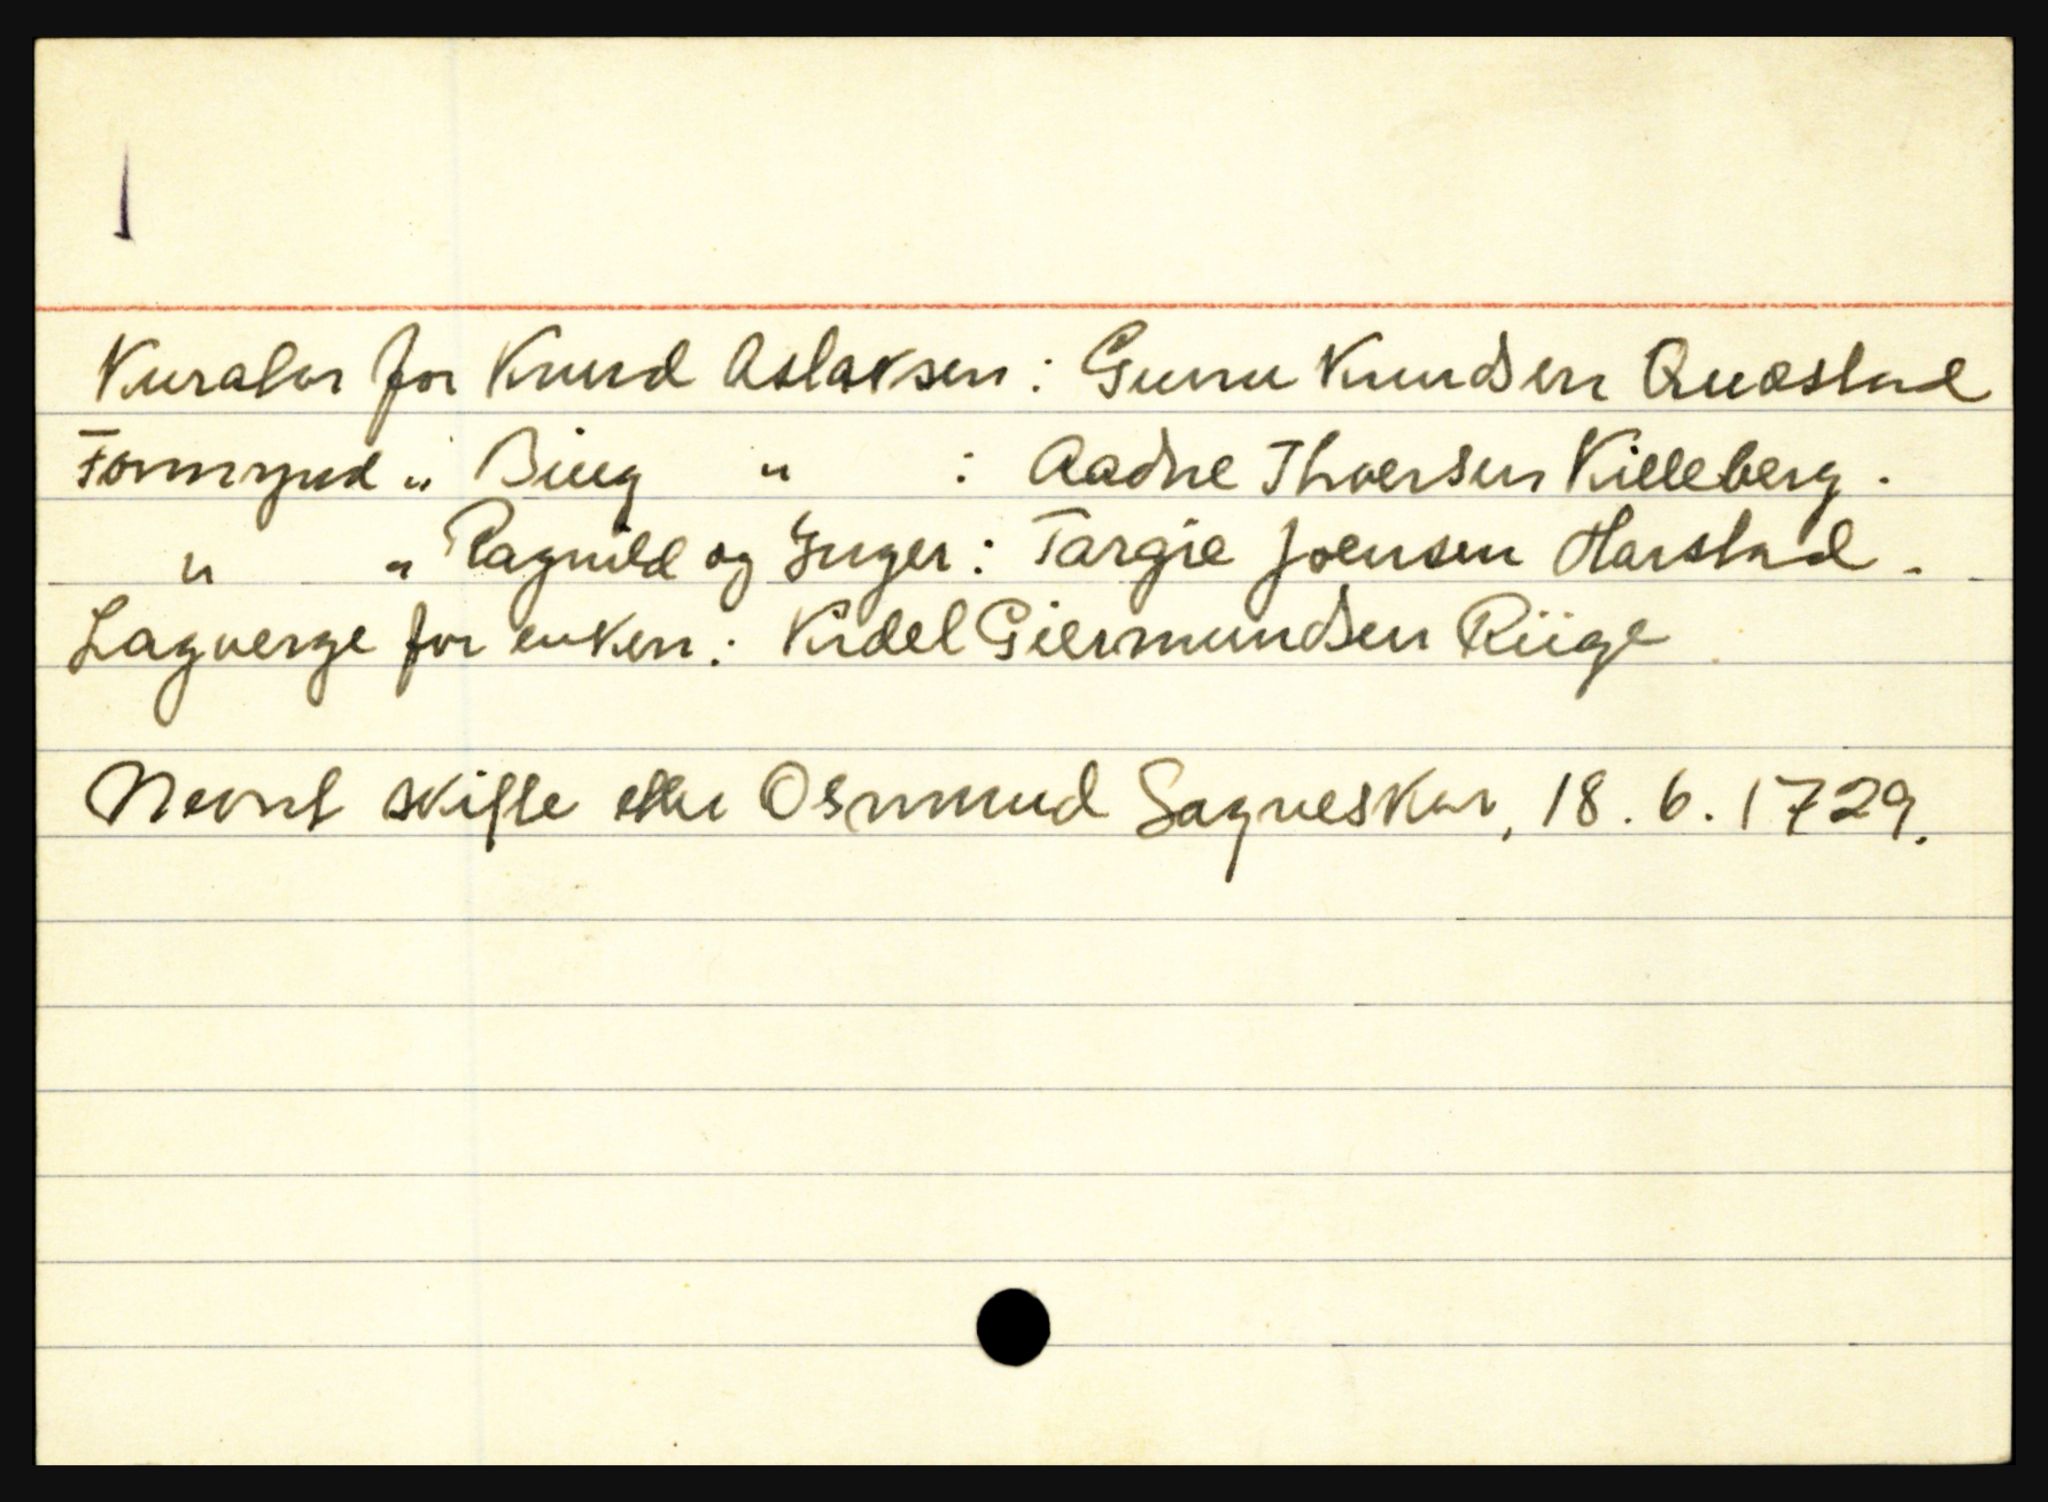 Kurator for Knud Aslaksen : Gunu Knudsen Quastad
Formynd " Biug " : Aadne Thoersen Killeberg .
" " Ragnild og Inger : Targie Joensen Harstad .
Lagverge for enken : Kidel Giermundsen Riige
Nevnt skifte etter Osmund Sagneskar, 18 . 6 . 1729.